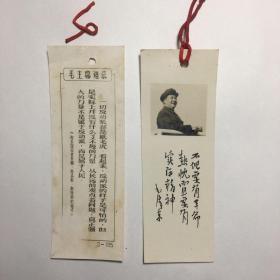 毛主席语录
一切反动派都是纸老虎。看起来，反动派的样子是可怕的，但
是实际上并没有什么了不起的力量。从长远的观点看问题，真正强
大的力量不是属于反动派，而是属于人民。
不但要有革命
热忱而且要有
实际精神
毛泽东